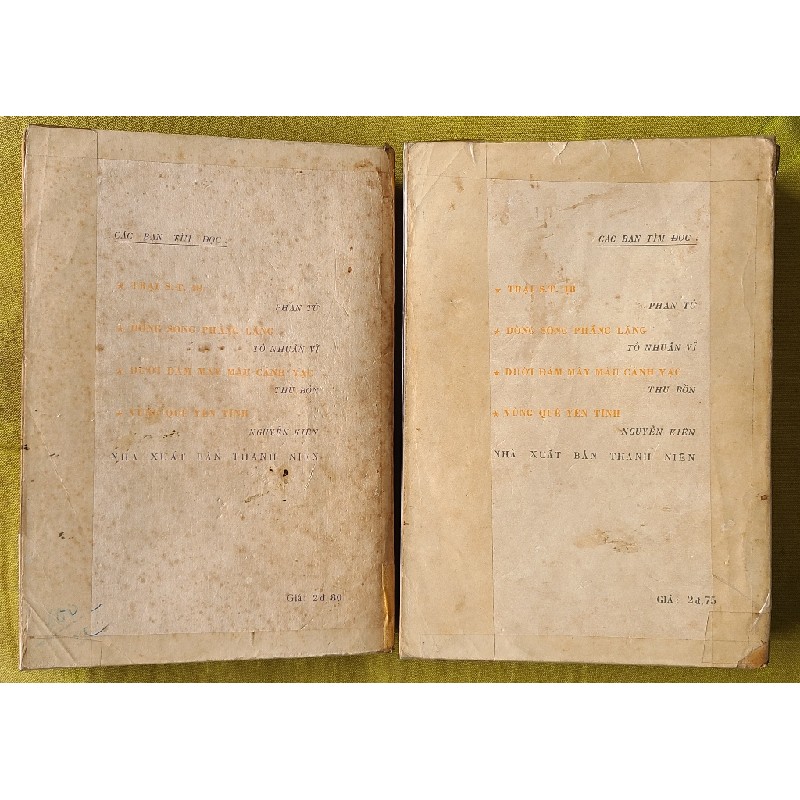 CÁC BẠN TÌM ĐỌC :
★ TRẠI S.T. 18
PHAN TỨ
★ DÒNG SÔNG PHẲNG LẶNG
TÔ NHUẬN VĨ
★ DƯỚI ĐÁM MÂY MÀU CÁNH VẠC
THU BỒN
★ VÙNG QUÊ YÊN TĨNH
NGUYỄN KIÊN
NHÀ XUẤT BẢN THANH NIÊN
Giá: 2đ 80
CÁC BẠN TÌM ĐỌC :
★ TRẠI S.T. 18
PHAN TỨ
★ DÒNG SÔNG PHẲNG LẶNG
TÔ NHUẬN VĨ
★ DƯỚI ĐÁM MÂY MÀU CÁNH VẠC
THU BỒN
★ VÙNG QUÊ YÊN TĨNH
NGUYỄN KIÊN
NHÀ XUẤT BẢN THANH NIÊN
GIÁ : 2đ,75